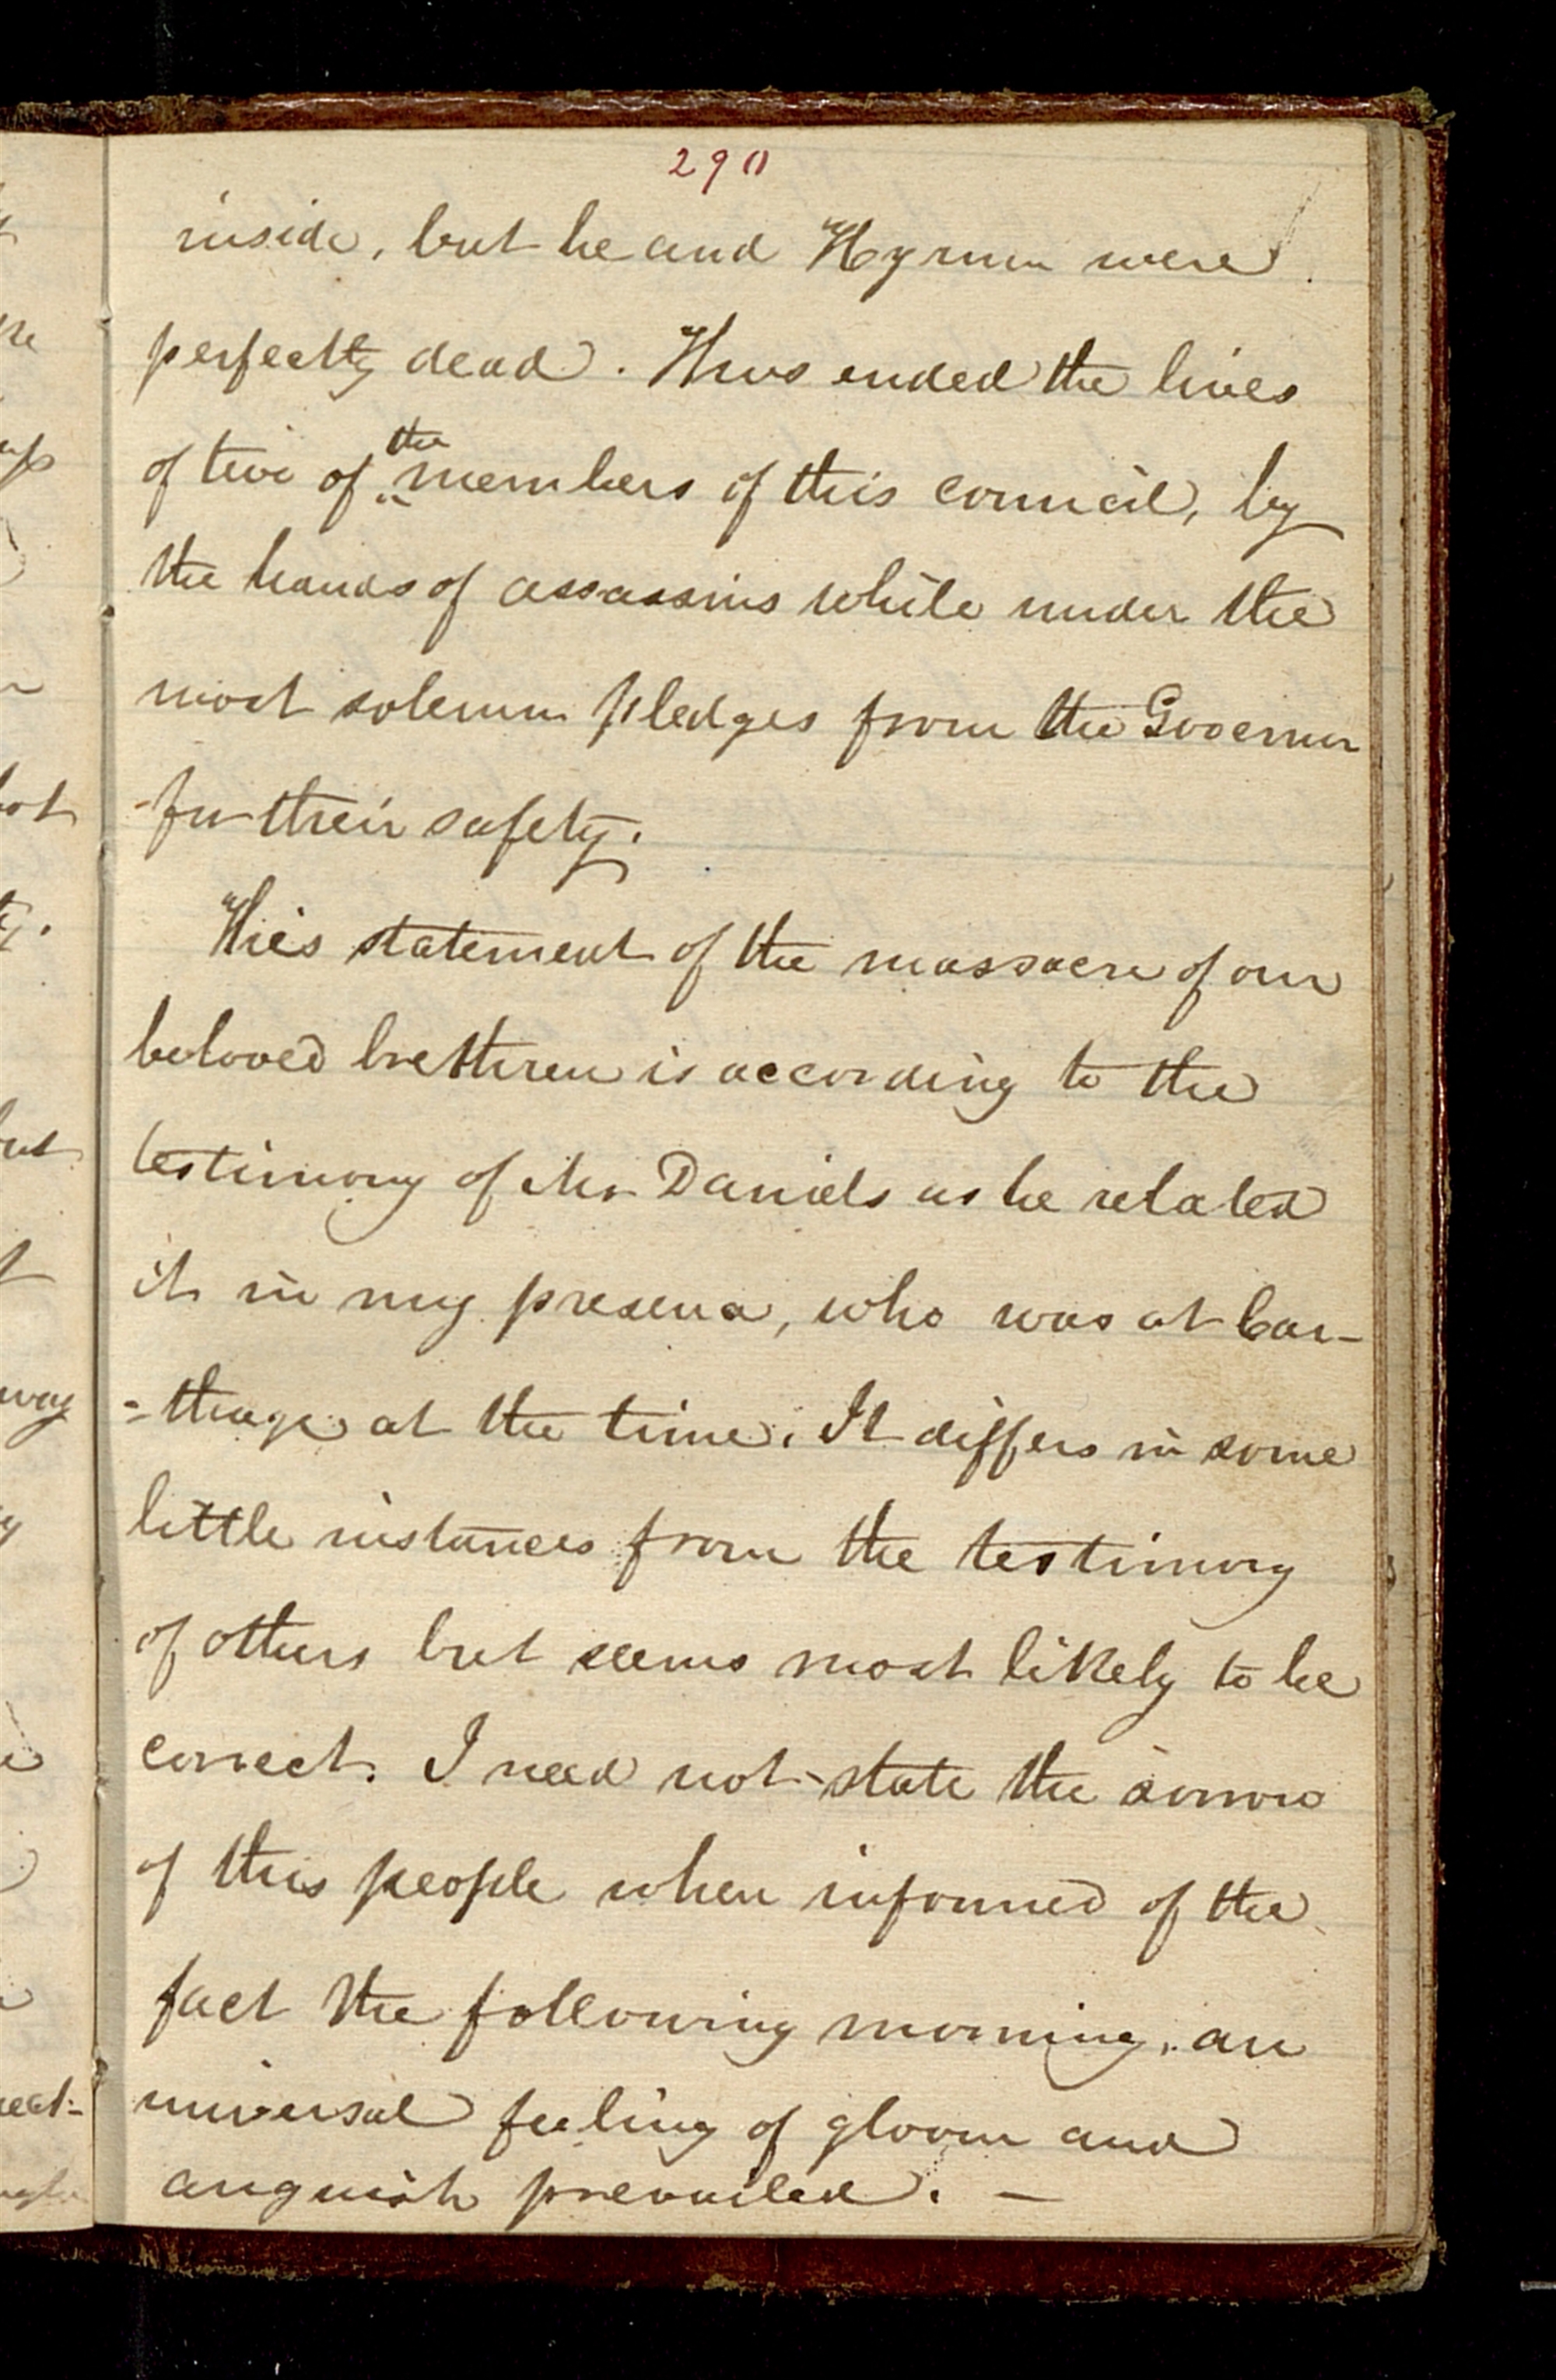 290
inside, but he and Hyrum were
perfectly dead. Thus ended the lives
of two of the members of this council, by
the hands of assassins while under the
most solemn pledges from the Governor
for their safety.
This statement of the massacre of our
beloved brethren is according to the
testimony of Mr Daniels as he related
it in my presence, who was at Car-
-thage at the time. It differs in some
little instances from the testimony
of others but seems most likely to be
correct. I need not state the sorrow
of this people when informed of the
fact the following morning, an
universal feeling of gloom and
anguish prevailed. —